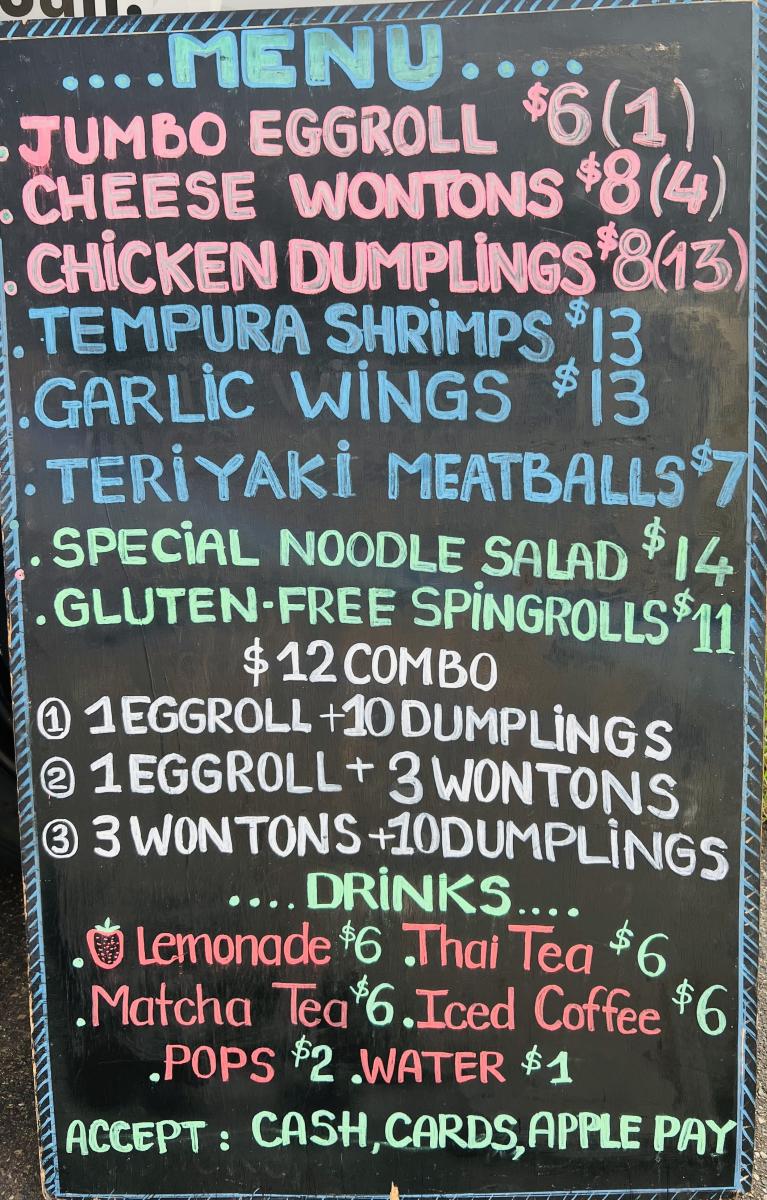 ....MENU....
.JUMBO EGGROLL $6(1)
.CHEESE WONTONS $8(4)
.CHiCKEN DUMPLiNGS $8(13)
.TEMPURA SHRiMPS $13
.GARLiC WiNGS $13
.TERiYAKi MEATBALLS $7
.SPECiAL NOODLE SALAD $14
.GLUTEN-FREE SPiNGROLLS $11
$12 COMBO
① 1 EGGROLL + 10 DUMPLiNGS
② 1 EGGROLL + 3 WONTONS
③ 3 WONTONS + 10 DUMPLiNGS
....DRiNKS....
.Lemonade $6 .Thai Tea $6
.Matcha Tea $6 .Iced Coffee $6
.POPS $2 .WATER $1
ACCEPT : CASH, CARDS, APPLE PAY